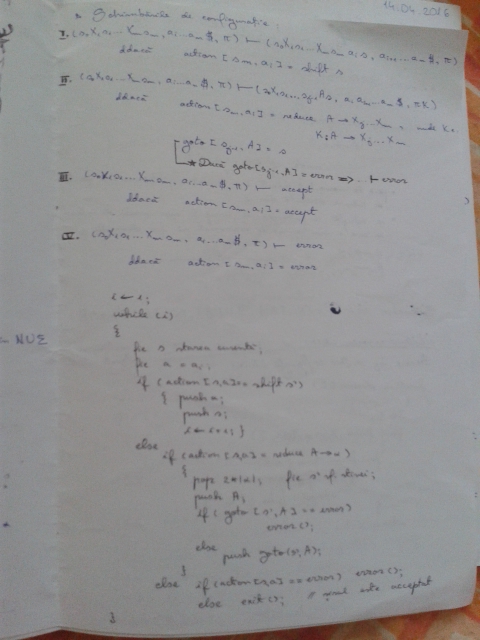 14.04.2016
3. Schimbările de configurație:
I. (s₀X₁s₁...Xₘsₘ, aᵢ...aₙ$, π) ⊢ (s₀X₁s₁...Xₘsₘaᵢs, aᵢ₊₁...aₙ$, π)
ddacă action[sₘ,aᵢ] = shift s
II. (s₀X₁s₁...Xₘsₘ, aᵢ...aₙ$, π) ⊢ (s₀X₁s₁...sⱼ₋₁As, aᵢ...aₙ$, πK)
ddacă action[sₘ,aᵢ] = reduce A → Xⱼ...Xₘ, unde K:
K: A → Xⱼ...Xₘ
goto[sⱼ₋₁,A] = s
* Dacă goto[sⱼ₋₁,A] = error => ⊢ error
III. (s₀X₁s₁...Xₘsₘ, aᵢ...aₙ$, π) ⊢ accept
ddacă action[sₘ,aᵢ] = accept
IV. (s₀X₁s₁...Xₘsₘ, aᵢ...aₙ$, π) ⊢ error
ddacă action[sₘ,aᵢ] = error
while(1)
{
fie s starea curentă;
fie a = aᵢ;
if (action[s,a] = shift s')
{ push a;
push s;
i ← i+1; }
else
if (action[s,a] = reduce A→α)
{
pop 2*|α|; fie s' vf. stivei;
push A;
if (goto[s',A] == error)
error();
else
push goto(s',A);
}
else if (action[s,a] == error) error();
else exit(); este acceptat
}
NUE